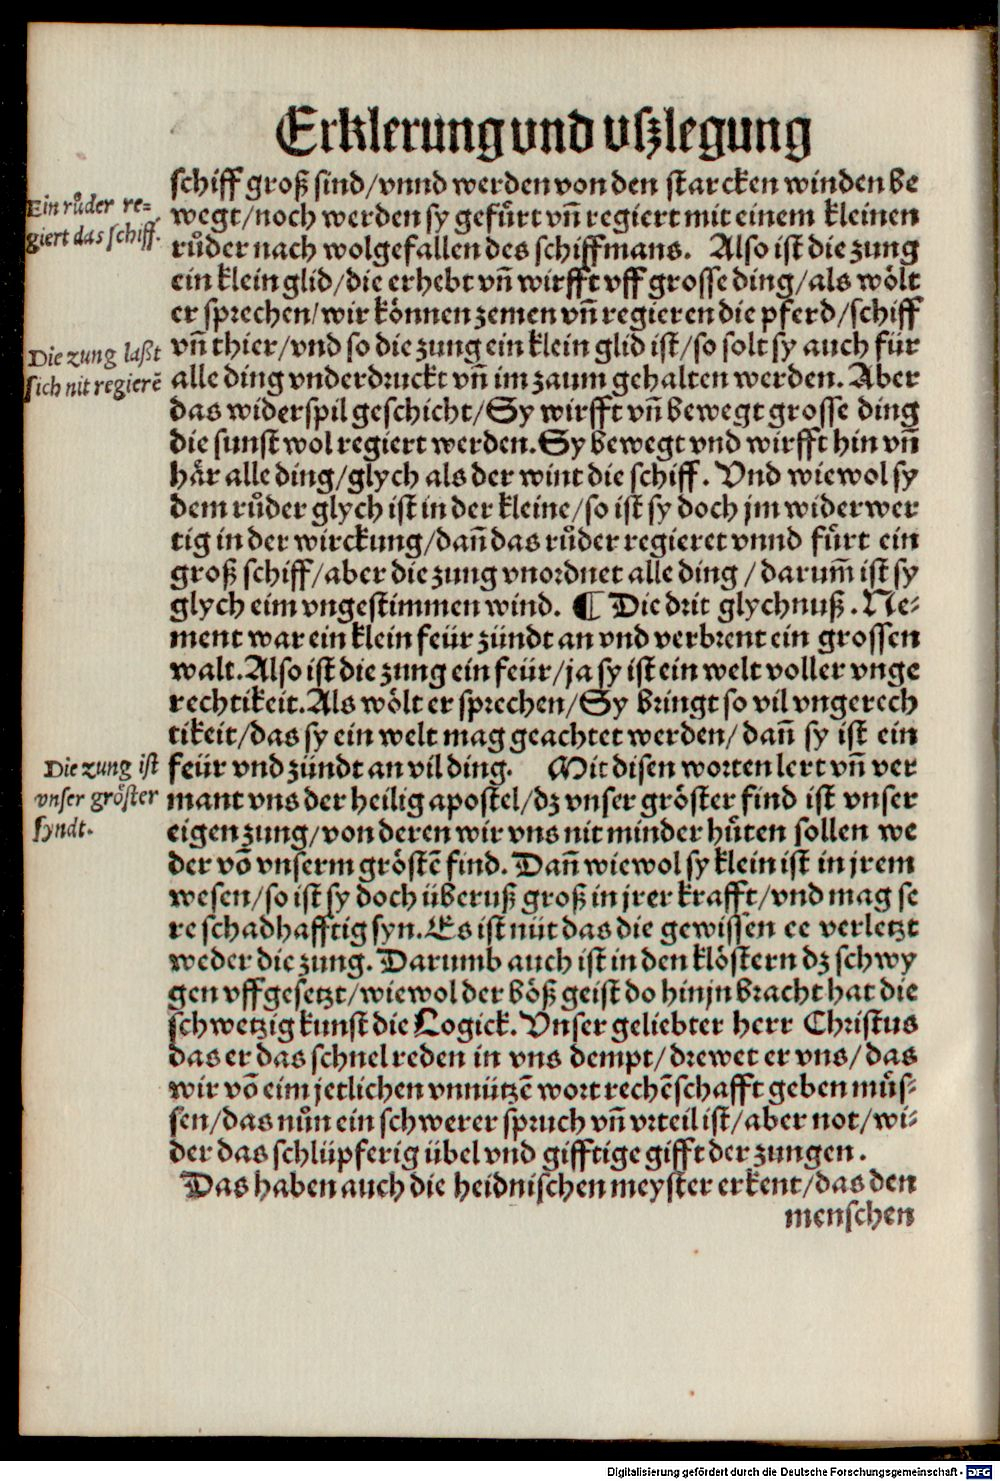 Erklerung vnd vßlegung
schiff groß sind/vnnd werden von den starcken winden be
Ein růder re=
giert das schiff.
wegt/noch werden sy gefůrt vn̄ regiert mit einem kleinen
růder nach wolgefallen des schiffmans. Also ist die zung
ein klein glid/die erhebt vn̄ wirfft vff grosse ding/als wölt
er sprechen/wir können zemen vn̄ regieren die pferd/schiff
Die zung laßt
sich nit regierē
vn̄ thier/vnd so die zung ein klein glid ist/so solt sy auch für
alle ding vnderdruckt vn̄ im zaum gehalten werden. Aber
das widerspil geschicht/Sy wirfft vn̄ bewegt grosse ding
die sunst wol regiert werden. Sy bewegt vnd wirfft hin vn̄
här alle ding/glych als der wint die schiff. Vnd wiewol sy
dem růder glych ist in der kleine/so ist sy doch jm widerwer
tig in der wirckung/dan̄ das růder regieret vnnd fůrt ein
groß schiff/aber die zung vnordnet alle ding/darum̄ ist sy
glych eim vngestimmen wind. ¶ Die drit glychnuß. Ne=
ment war ein klein feür zündt an vnd verbrent ein grossen
walt. Also ist die zung ein feür/ja sy ist ein welt voller vnge
rechtikeit. Als wölt er sprechen/Sy bringt so vil vngerech
tikeit/das sy ein welt mag geachtet werden/dan̄ sy ist ein
Die zung ist
vnser gröster
fyndt.
feür vnd zündt an vil ding. Mit disen worten lert vn̄ ver
mant vns der heilig apostel/dz vnser gröster find ist vnser
eigen zung/von deren wir vns nit minder hůten sollen we
der vō vnserm gröstē find. Dan̄ wiewol sy klein ist in jrem
wesen/so ist sy doch überuß groß in jrer krafft/vnd mag se
re schadhafftig syn. Es ist nüt das die gewissen ee verletzt
weder die zung. Darumb auch ist in den klöstern dz schwy
gen vffgesetzt/wiewol der böß geist do hinjn bracht hat die
schwetzig kunst die Logick. Vnser geliebter herr Christus
das er das schnel reden in vns dempt/drewet er vns/das
wir vō eim jetlichen vnnützē wort rechēschafft geben můs=
sen/das nůn ein schwerer spruch vn̄ vrteil ist/aber not/wi=
der das schlüpferig übel vnd gifftige gifft der zungen.
Das haben auch die heidnischen meyster erkent/das den
menschen
Digitalisierung gefördert durch die Deutsche Forschungsgemeinschaft - DFG